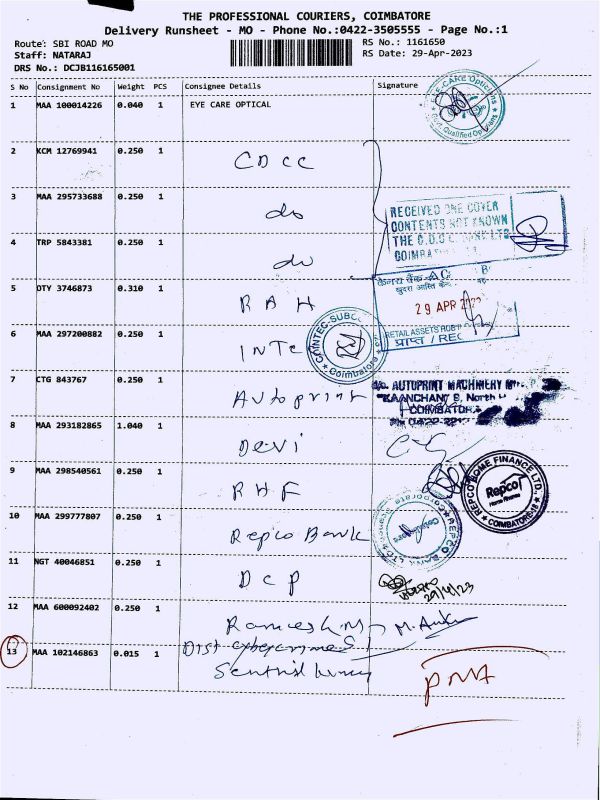 THE PROFESSIONAL COURIERS, COIMBATORE
Delivery Runsheet - MO - Phone No.:0422-3505555 - Page No.:1
Route: SBI ROAD MO
RS No.: 1161650
Staff: NATARAJ
RS Date: 29-Apr-2023
DRS No.: DCJB116165001
S No Consignment No Weight PCS Consignee Details Signature
1 MAA 100014226 0.040 1 EYE CARE OPTICAL
EYE-CARE Opticians
Qualified
2 KCM 12769941 0.250 1 CDCC
3 MAA 295733688 0.250 1 do
RECEIVED ONE COVER
CONTENTS NOT KNOWN
THE C.D.C.C. BANK LTD
4 TRP 5843381 0.250 1 do
5 OTY 3746873 0.310 1 RAH
29 APR
RETAIL ASSETS HUB
प्राप्त / REC
6 MAA 297200882 0.250 1 INTC
Coimbatore
7 CTG 843767 0.250 1 Autoprint
AUTOPRINT MACHINERY
KAANCHAN 9, North
COIMBATORE
8 MAA 293182865 1.040 1 Devi
9 MAA 298540561 0.250 1 RHF
REPCO HOME FINANCE LTD.,
Repco
Home Finance
COIMBATORE-18
10 MAA 299777807 0.250 1 Repco Bank
REPCO BANK LTD
Coimbatore
11 NGT 40046851 0.250 1 DCP
29/4/23
12 MAA 600092402 0.250 1 Ramesh.M
13 MAA 102146863 0.015 1 Dist cybercrime
PNA